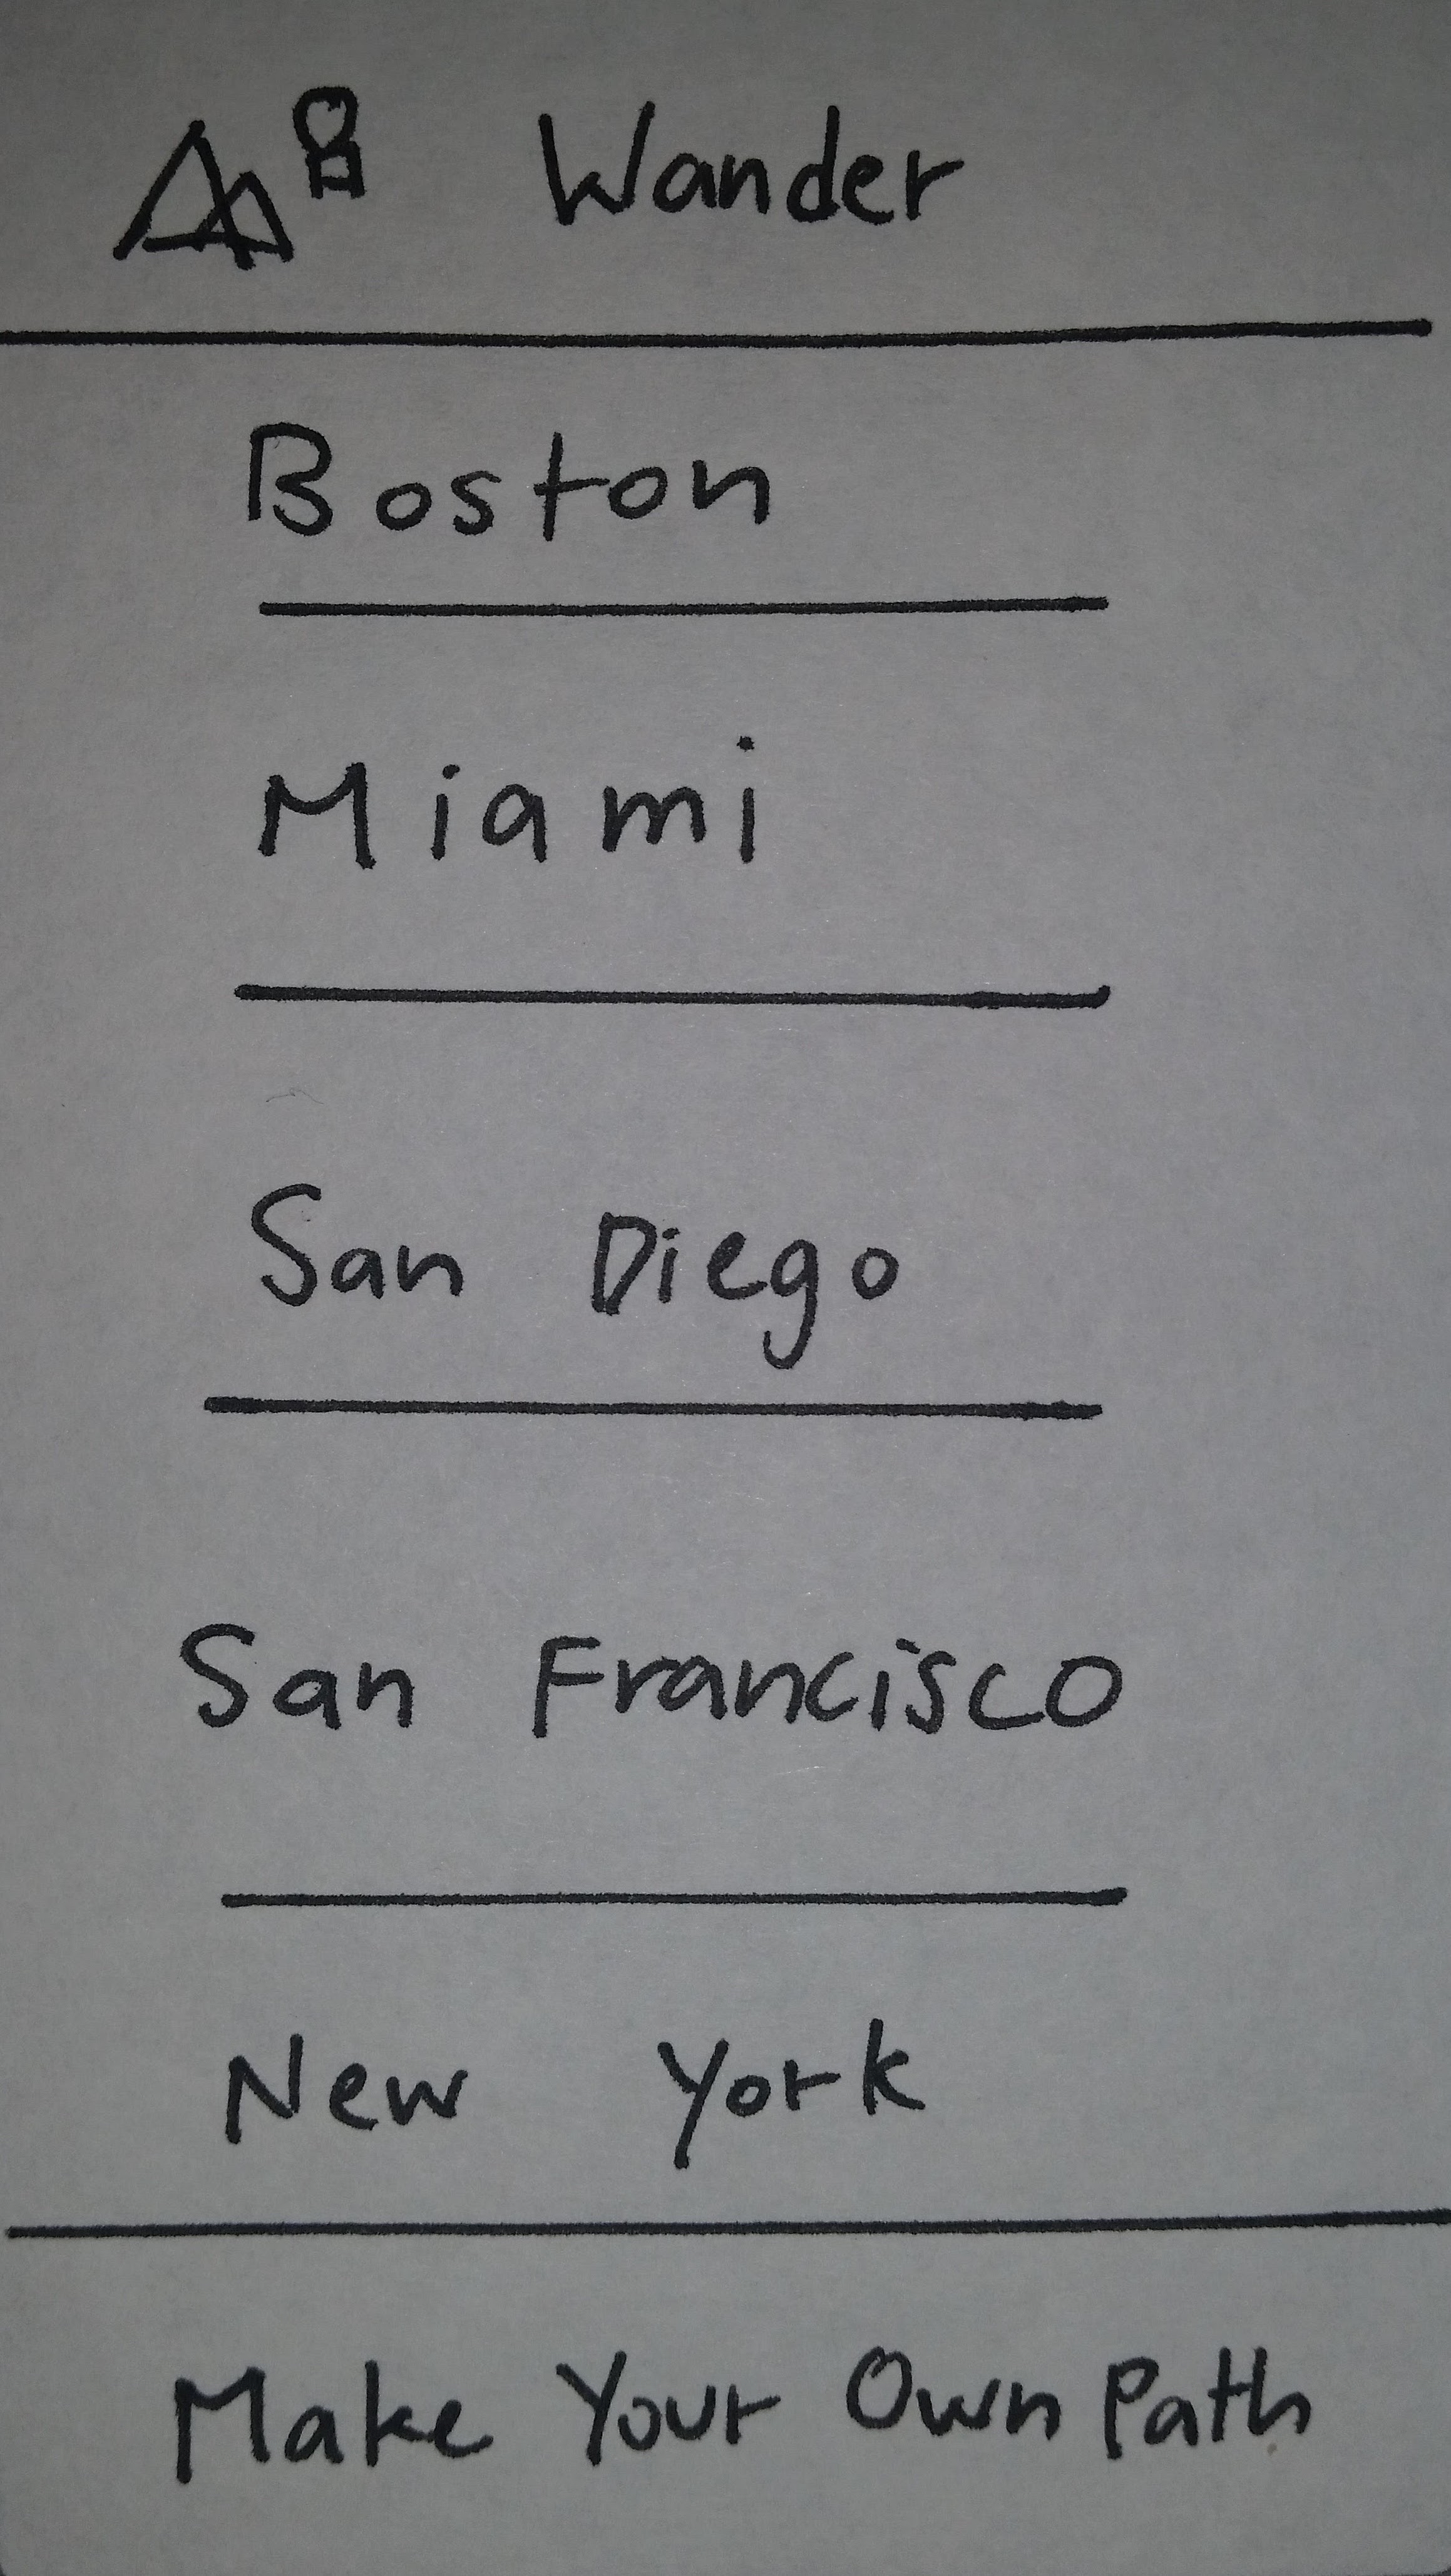 Wander
Boston
Miami
San Diego
San Francisco
New York
Make Your Own Path